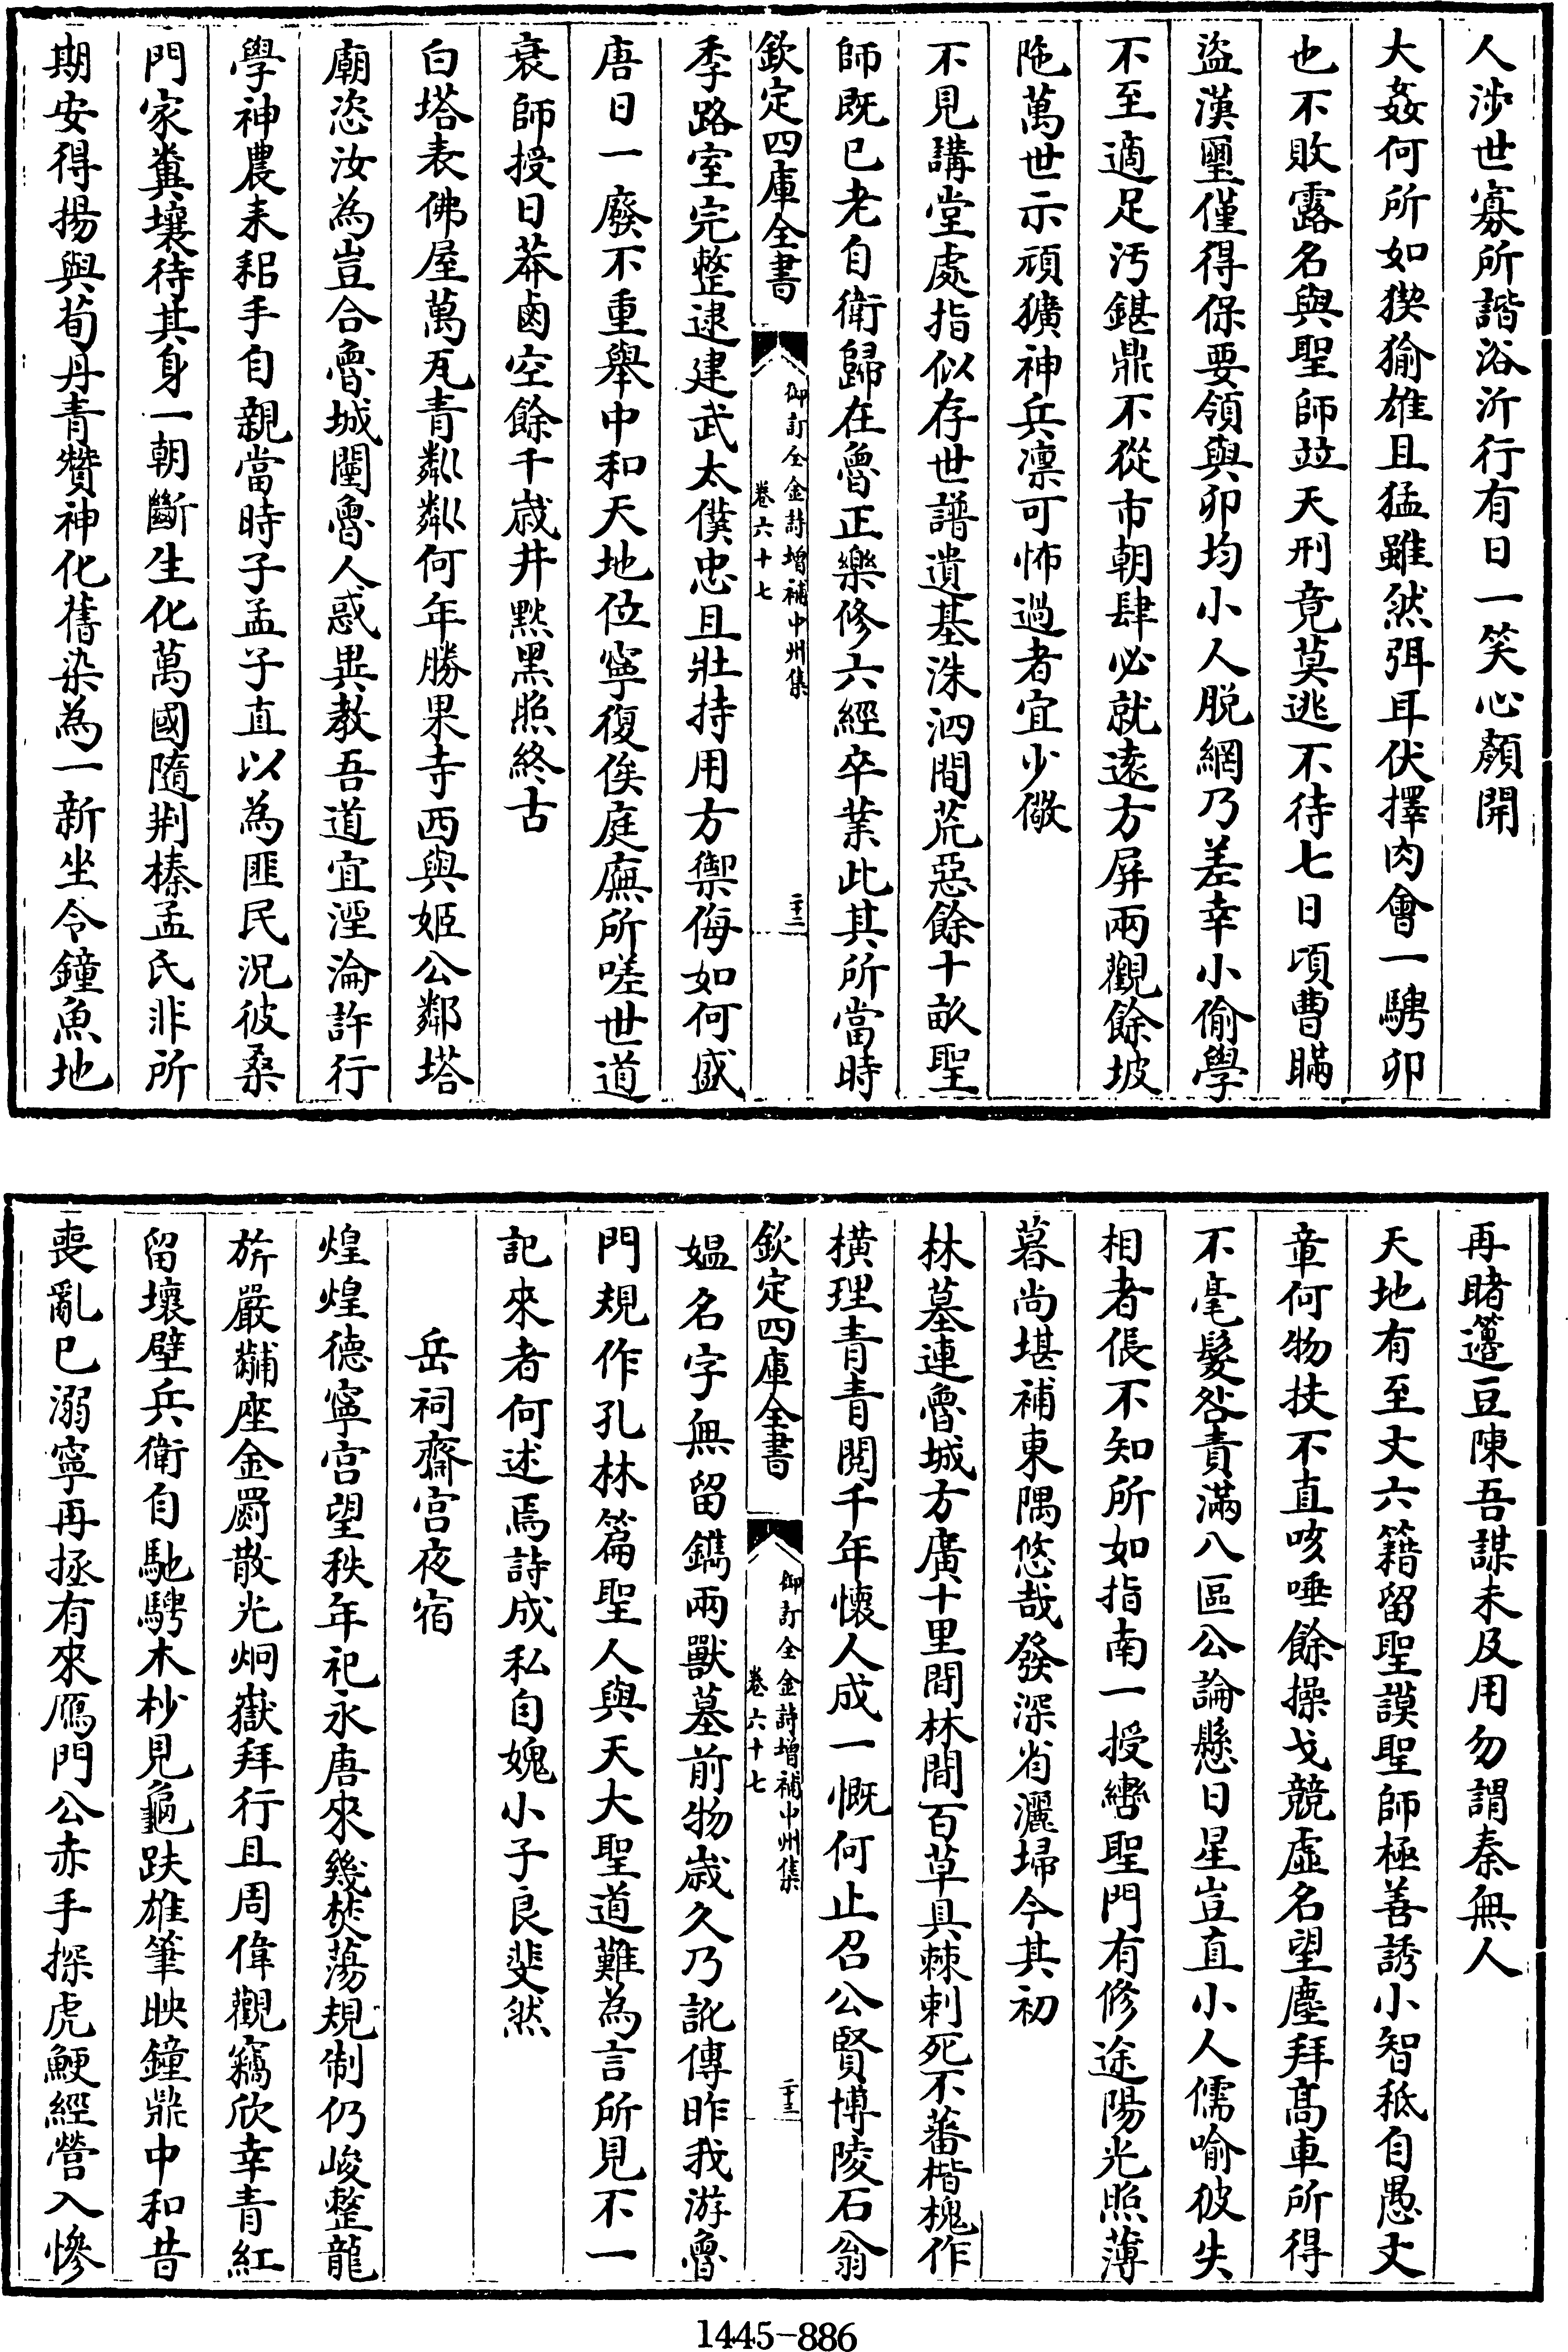 人涉世寡所諧浴沂行有日一笑心顏開
大姦何所如猰㺄雄且猛雖然弭耳伏擇肉會一騁卯
也不敗露名與聖師並天刑竟莫逃不待七日頃曹瞞
盜漢璽僅得保要領與卯均小人脱網乃差幸小偷學
不至適足汚鍖鼎不從市朝肆必就遠方屏兩觀餘坡
陁萬世示頑獷神兵凛可怖過者宜少儆
不見講堂處指似存世譜遺基洙泗間荒惡餘十畝聖
師既已老自衛歸在魯正樂修六經卒業此其所當時
欽定四庫全書
御訂全金詩增補中州集
卷六十七
二十二
季路室完整逮建武太僕忠且壯持用方禦侮如何盛
唐日一廢不重舉中和天地位寧復俟庭廡所嗟世道
衰師授日莽鹵空餘千歲井黙黑照終古
白塔表佛屋萬瓦青粼粼何年勝果寺西與姬公鄰塔
廟恣汝為豈合魯城闉魯人惑異教吾道宜湮淪許行
學神農耒耜手自親當時子孟子直以為匪民況彼桑
門家糞壤待其身一朝斷生化萬國隨荆榛孟氏非所
期安得揚與荀丹青贊神化舊染為一新坐令鐘魚地
再睹籩豆陳吾謀未及用勿謂秦無人
天地有至文六籍留聖謨聖師極善誘小智秪自愚文
章何物技不直咳唾餘操戈競虛名望塵拜髙車所得
不毫髮咎責滿八區公論懸日星豈直小人儒喻彼失
相者倀不知所如指南一授轡聖門有修途陽光照薄
暮尚堪補東隅悠哉發深省灑埽今其初
林墓連魯城方廣十里間林間百草具棘刺死不蕃楷槐作
橫理青青閱千年懷人成一慨何止召公賢博陵石翁
欽定四庫全書
御訂全金詩增補中州集
卷六十七
二十三
媼名字無留鐫兩獸墓前物歲久乃訛傳昨我游魯
門規作孔林篇聖人與天大聖道難為言所見不一
記來者何述焉詩成私自媿小子良斐然
岳祠齋宫夜宿
煌煌德寧宫望秩年祀永唐來幾焚蕩規制仍峻整龍
旂嚴黼座金罽散光炯嶽拜行且周偉觀竊欣幸青紅
留壞壁兵衛自馳騁木杪見龜趺雄筆映鐘鼎中和昔
喪亂已溺寧再拯有來鴈門公赤手探虎鯁經營入慘
1445-886